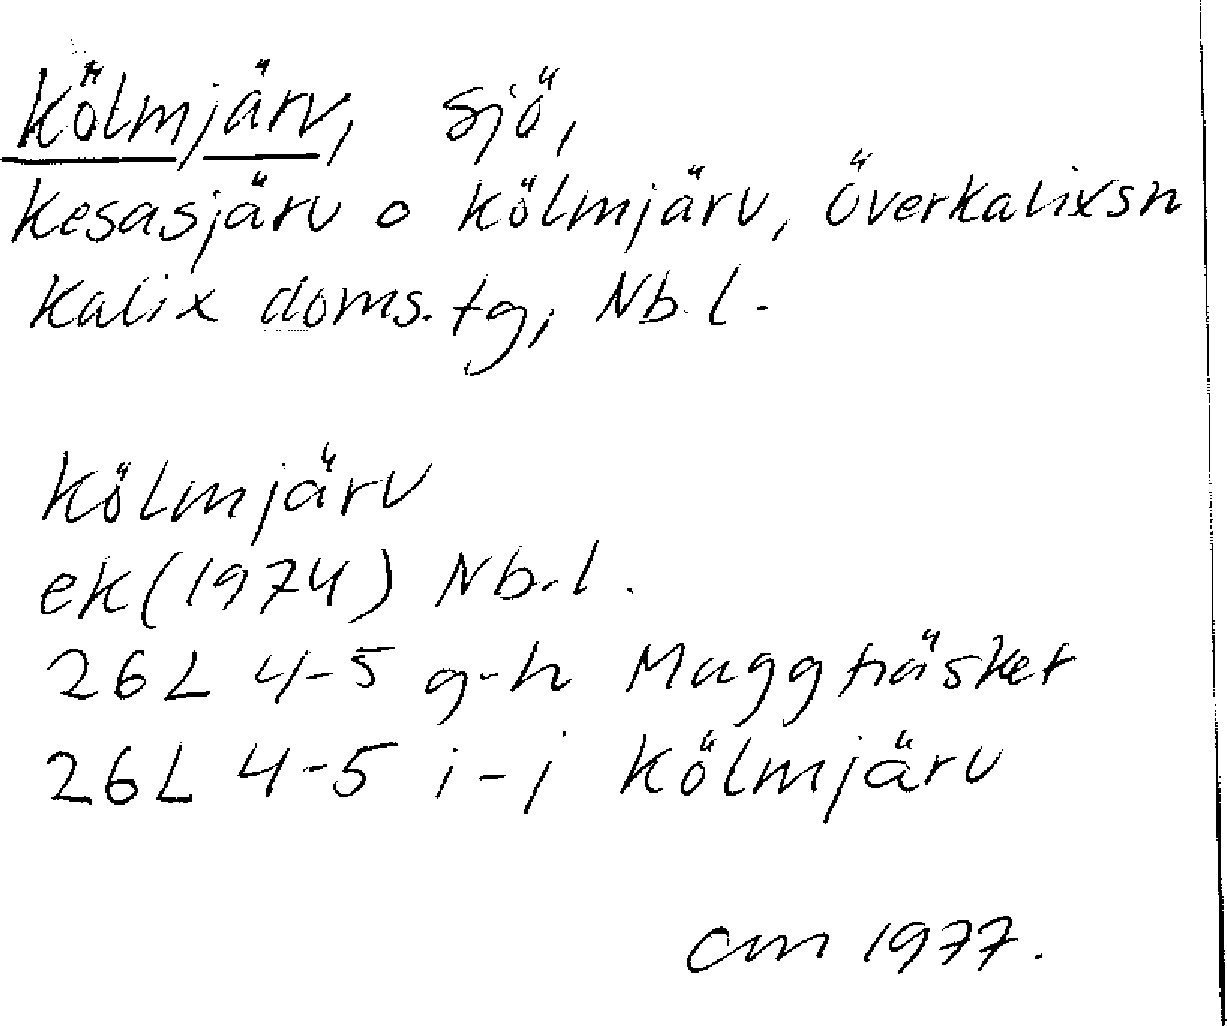 Kölmjärv, sjö,
Kesasjärv o Kölmjärv, Överkalixsn
Kalix doms. tg, Nb. l.
Kölmjärv
ek (1974) Nb. l.
26L 4-5 g-h Muggträsket
26L 4-5 i-j Kölmjärv
CM 1977.